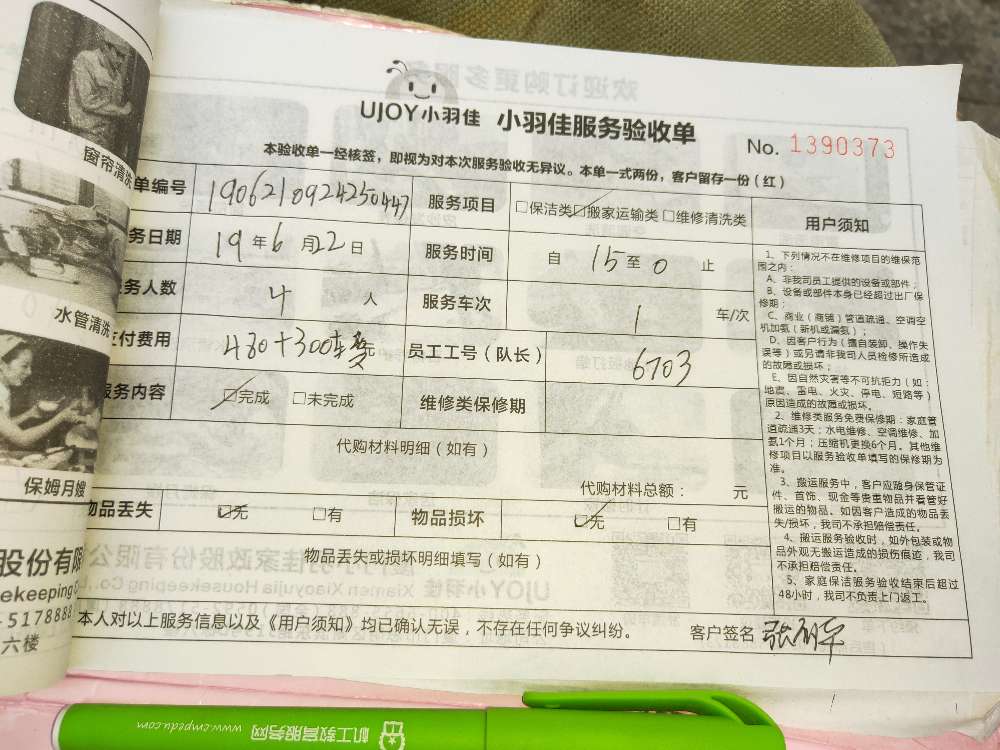 UJOY小羽佳 小羽佳服务验收单
No. 1390373
本验收单一经核签，即视为对本次服务验收无异议。本单一式两份，客户留存一份（红）
单编号 1906210924250447 服务项目 □保洁类☑搬家运输类□维修清洗类 用户须知
务日期 19年6月22日 服务时间 自 15 至 0 止
务人数 4 人 服务车次 1 车/次
付费用 480+300 元 员工工号（队长） 6703
服务内容 ☑完成 □未完成 维修类保修期
代购材料明细（如有）
代购材料总额： 元
物品丢失 ☑无 □有 物品损坏 ☑无 □有
物品丢失或损坏明细填写（如有）
本人对以上服务信息以及《用户须知》均已确认无误，不存在任何争议纠纷。 客户签名
1、下列情况不在维修项目的维保范
围之内：
A、非我司员工提供的设备或部件；
B、设备或部件本身已经超过出厂保
修期；
C、商业（商铺）管道疏通、空调空
机加氨（新机或漏氨）；
D、因客户行为（擅自装卸、操作失
误等）或另请非我司人员检修所造成
的故障或损坏；
E、因自然灾害等不可抗拒力（如：
地震、雷电、火灾、停电、短路等）
原因造成的故障或损坏。
2、维修类服务免费保修期：家庭管
道疏通3天；水电维修、空调维修、加
氨1个月；压缩机更换6个月。其他维
修项目以服务验收单填写的保修期为
准。
3、搬运服务中，客户应随身保管证
件、首饰、现金等贵重物品并看管好
搬运的物品。如因客户造成的物品丢
失/损坏，我司不承担赔偿责任。
4、搬运服务验收时，如外包装或物
品外观无搬运造成的损伤痕迹，我司
不承担赔偿责任。
5、家庭保洁服务验收结束后超过
48小时，我司不负责上门返工。
窗帘清洗
水管清洗
保姆月嫂
股份有限
ekeeping
5178888
六楼
机工教育服务网
www.cmpedu.com